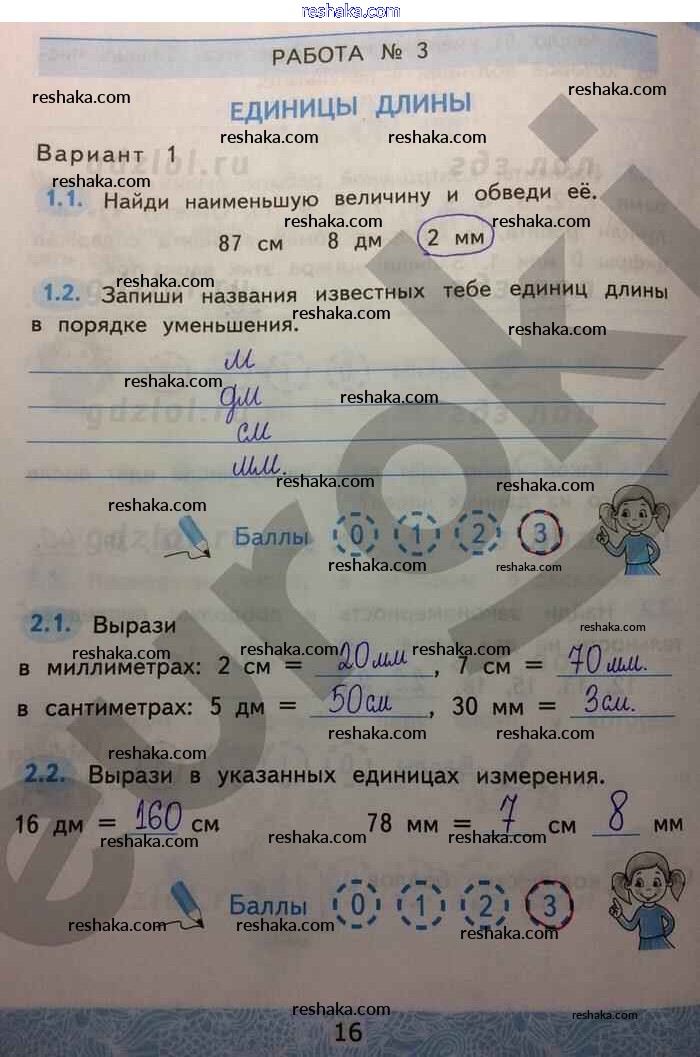 reshaka.com
РАБОТА № 3
reshaka.com
reshaka.com
ЕДИНИЦЫ ДЛИНЫ
reshaka.com reshaka.com
Вариант 1
1.1. Найди наименьшую величину и обведи её.
reshaka.com reshaka.com
87 см 8 дм 2 мм
reshaka.com
1.2. Запиши названия известных тебе единиц длины
reshaka.com
в порядке уменьшения.
reshaka.com
м
reshaka.com
дм reshaka.com
см
мм.
reshaka.com reshaka.com
reshaka.com
Баллы 0 1 2 3
reshaka.com reshaka.com
2.1. Вырази
reshaka.com reshaka.com
reshaka.com reshaka.com
в миллиметрах: 2 см = 20 мм, 7 см = 70 мм.
в сантиметрах: 5 дм = 50 см, 30 мм = 3 см.
reshaka.com
reshaka.com
2.2. Вырази в указанных единицах измерения.
reshaka.com
16 дм = 160 см 78 мм = 7 см 8 мм
reshaka.com reshaka.com reshaka.com
reshaka.com
Баллы 0 1 2 3
reshaka.com reshaka.com
reshaka.com
reshaka.com
16